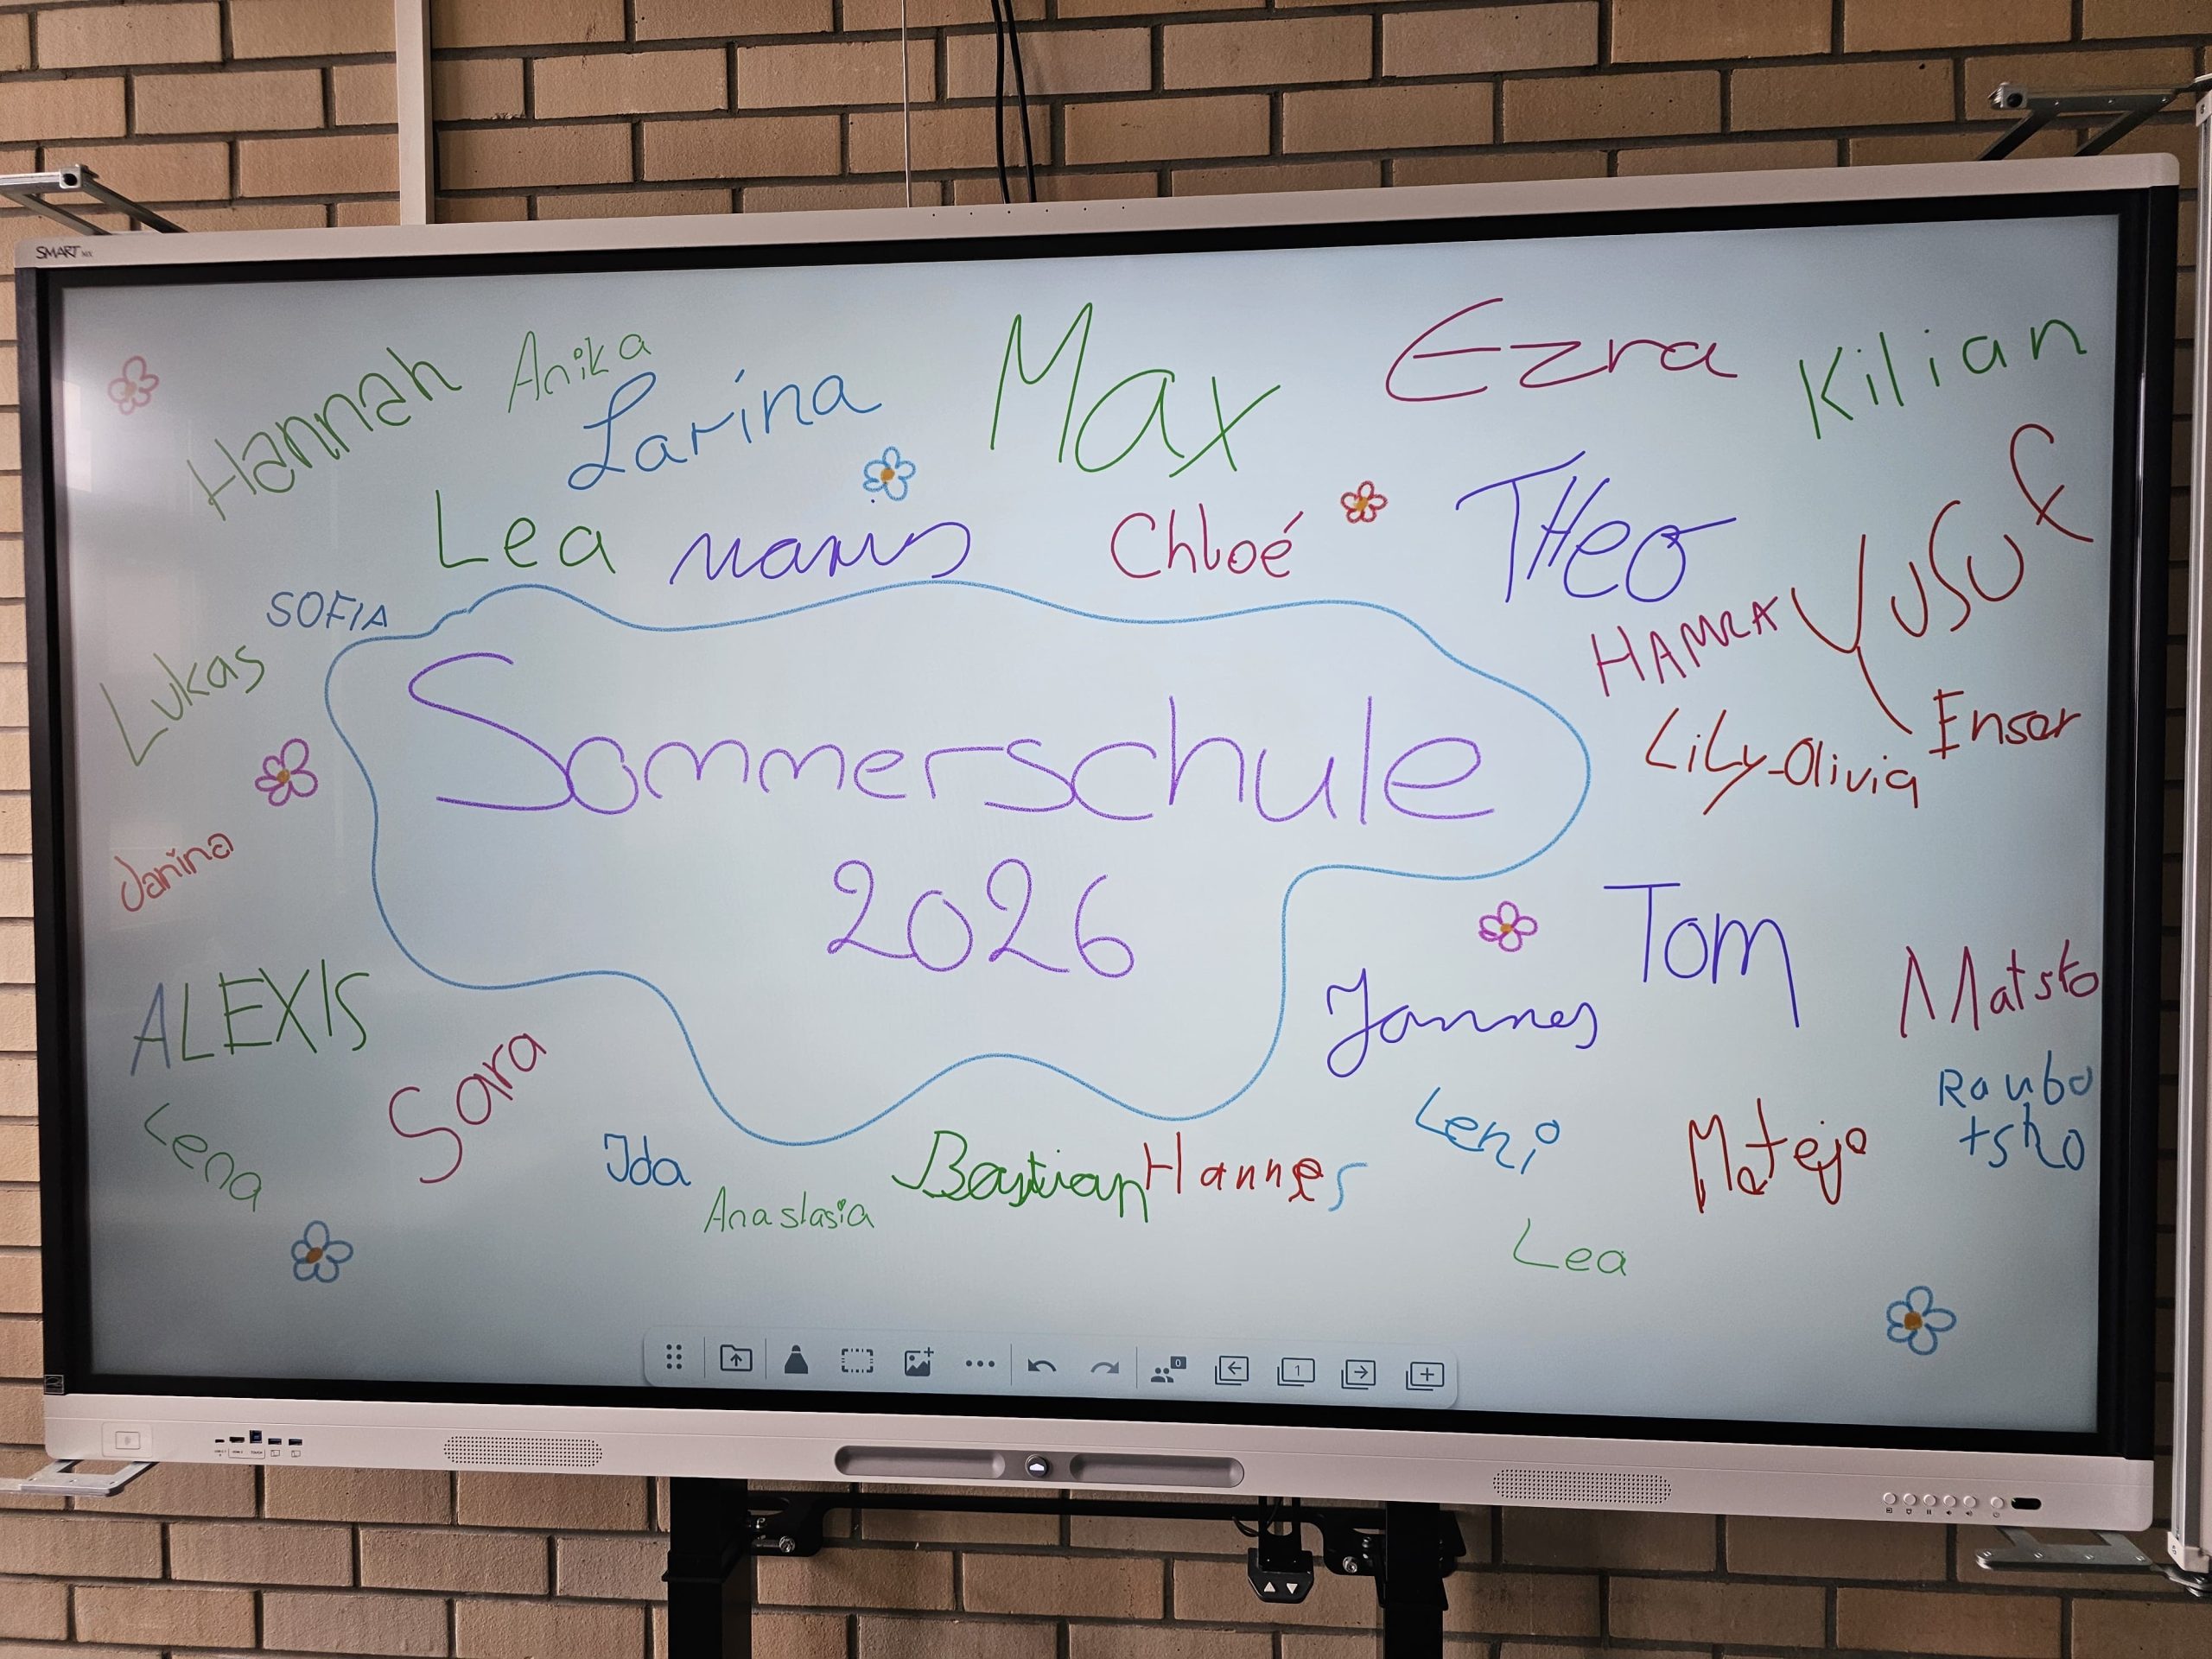 SMART
Hannah
Anika
Larina
Max
Ezra
Kilian
Lea
Chloé
THeo
Yusuf
SOFIA
Lukas
HAMZA
Sommerschule
2026
Ensar
LiLy-Olivia
Janina
Tom
ALEXIS
Jannes
Matsko
Sara
Lena
Ida
Anastasia
Bastian
Hannes
Leni
Matejo
Raubo
tsho
Lea
1